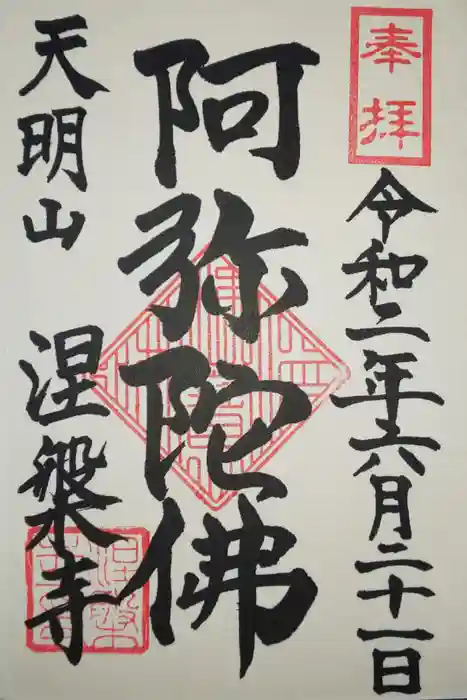 奉拝
令和二年六月二十一日
阿弥陀佛
天明山
涅槃寺